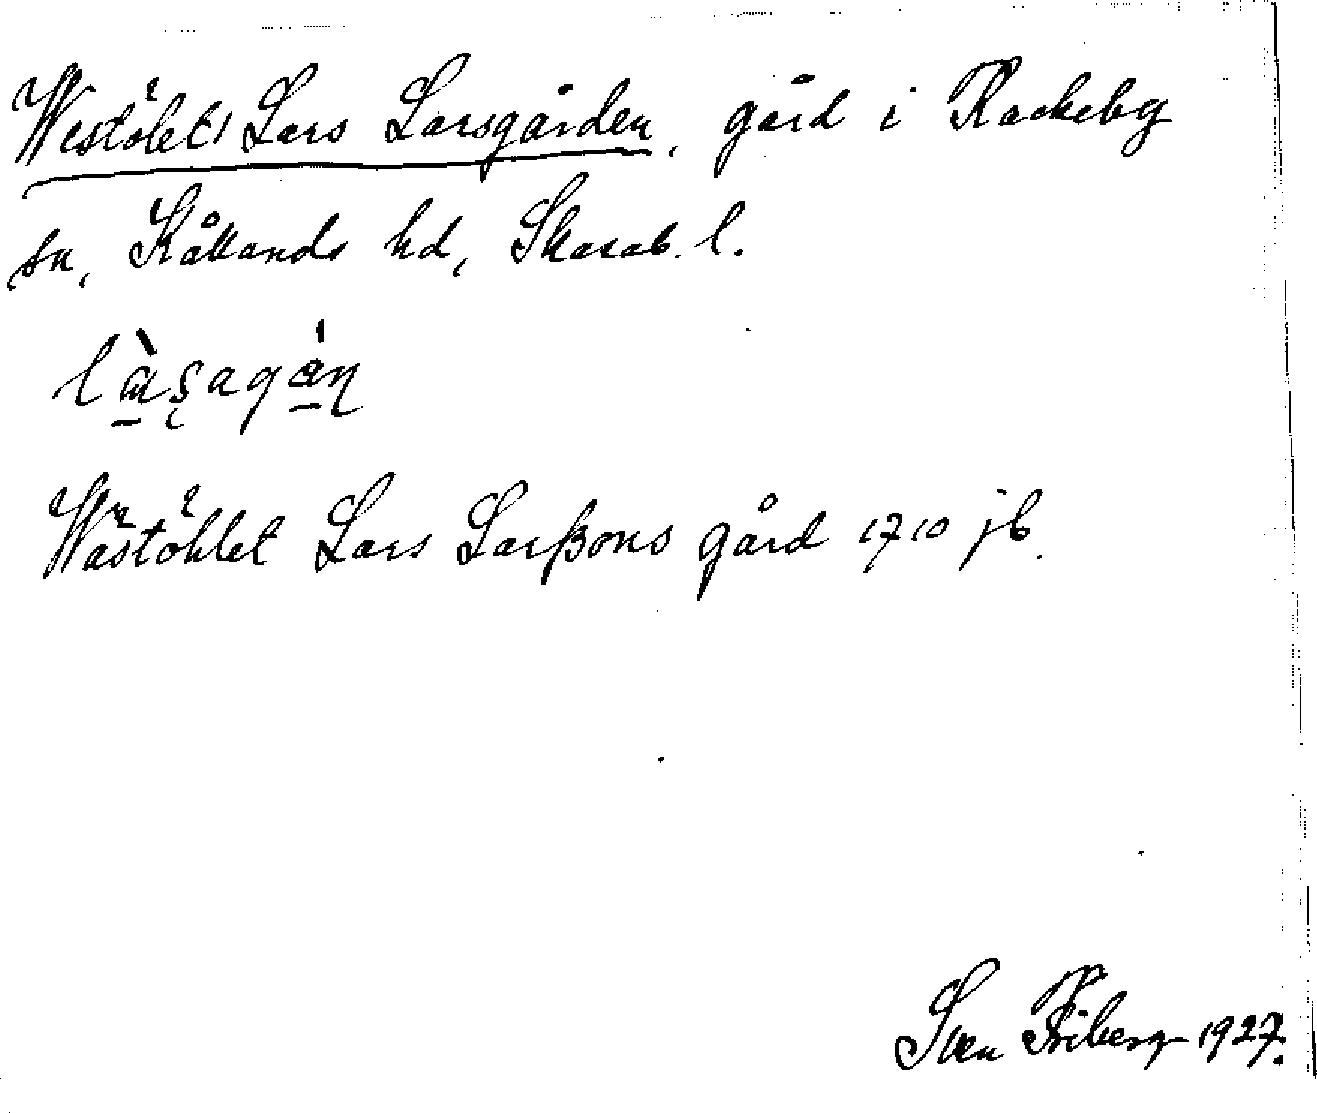 Westölet, Lars Larsgården, gård i Rackeby
sn, Kållands hd, Skarab. l.
Wästöhlet Lars Larßons gård 1710 jb.
Sven Friberg 1927.